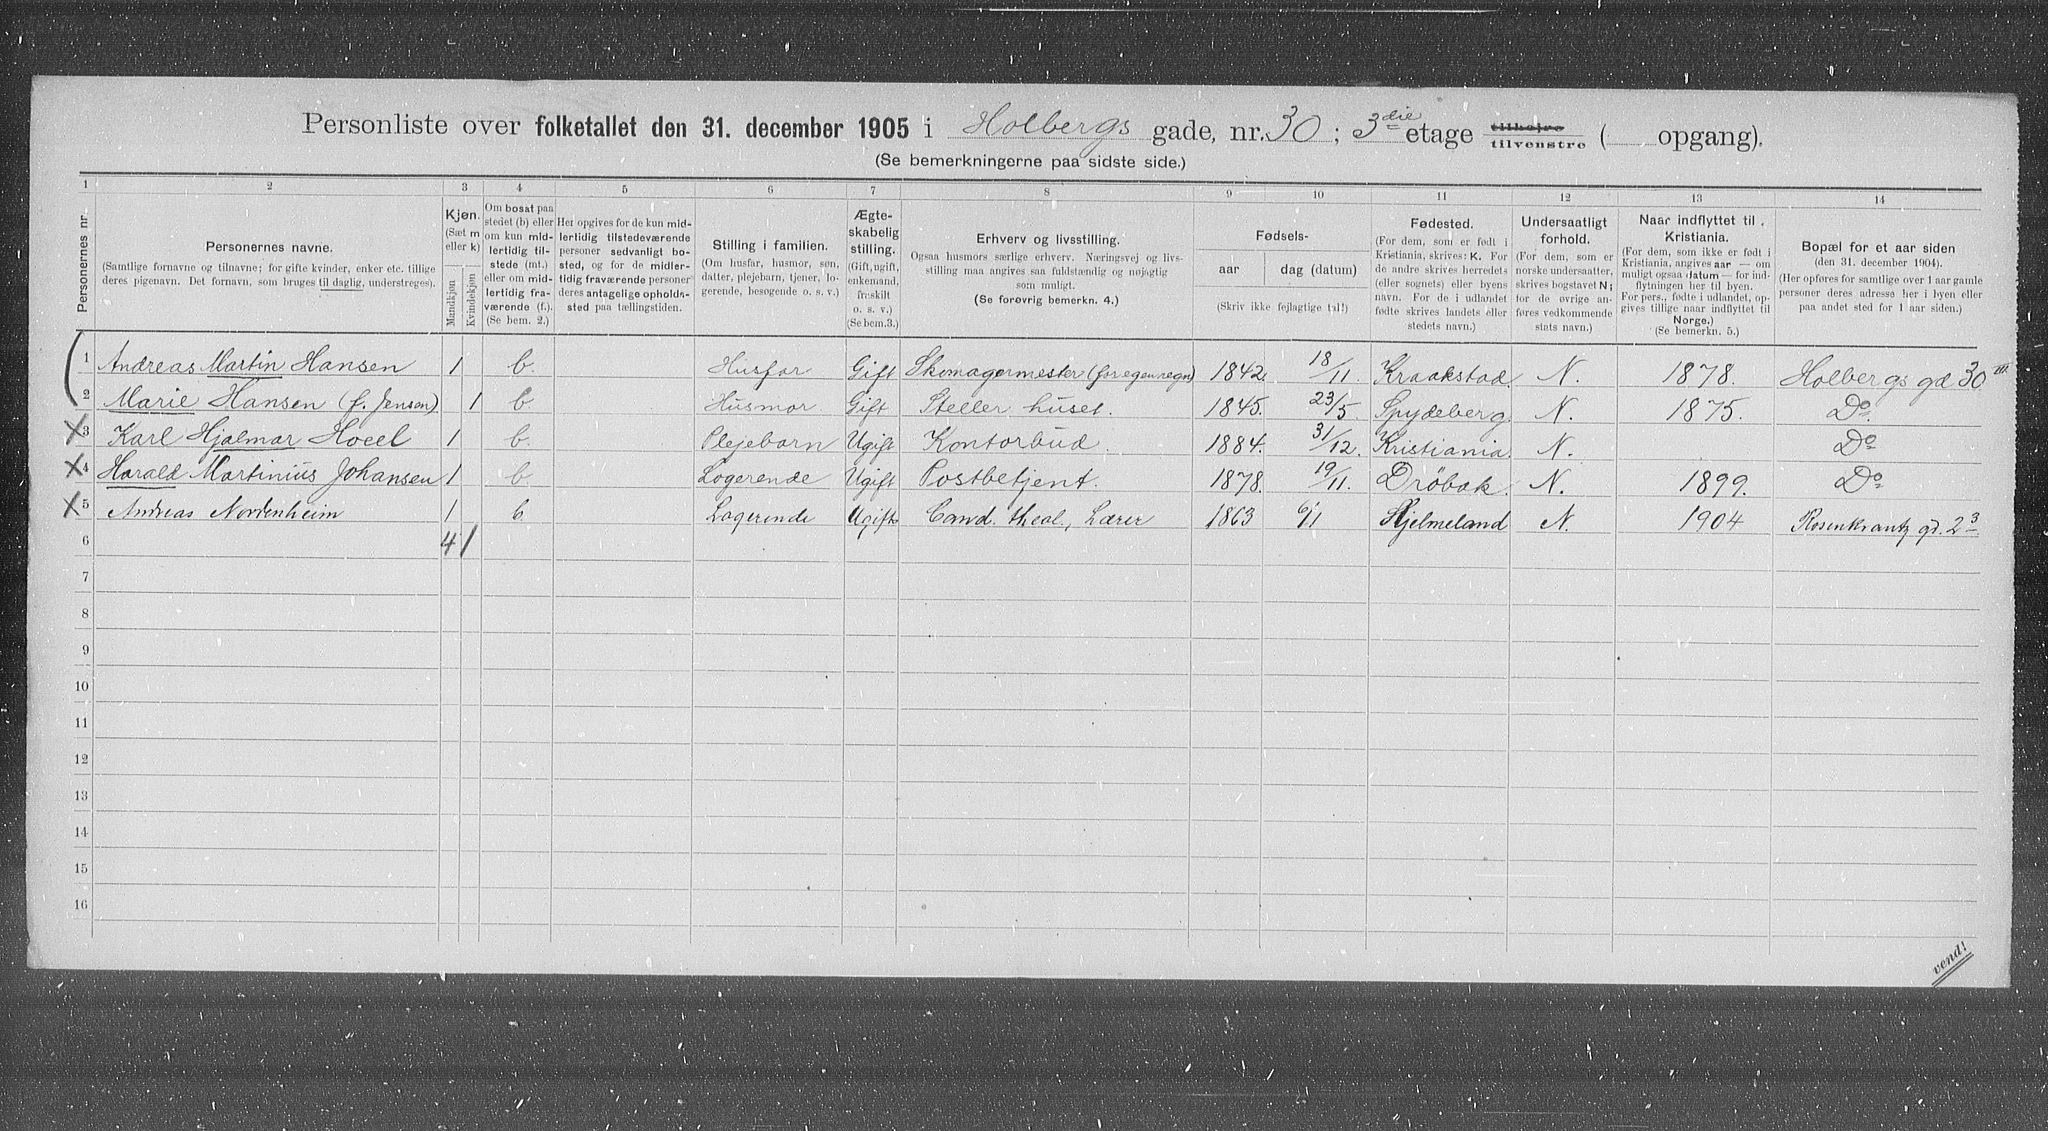 Personliste over folketallet den 31. december 1905 i Holbergs gade, nr. 30; 3die etage tilhøjre tilvenstre ( opgang).
(Se bemerkningerne paa sidste side.)
1 2 3 4 5 6 7 8 9 10 11 12 13 14
Personernes nr.
Personernes navne.
(Samtlige fornavne og tilnavne; for gifte kvinder, enker etc. tillige
deres pigenavn. Det fornavn, som bruges til daglig, understreges).
Kjøn.
(Sæt m
eller k)
Mandkjøn
Kvindekjøn
Om bosat paa
stedet (b) eller
om kun mid-
lertidig til-
stede (mt.)
eller om mid-
lertidig fra-
værende (f.).
(Se bem. 2.)
Her opgives for de kun mid-
lertidig tilstedeværende
personer sedvanlig bo-
sted, og for de midler-
tidig fraværende personer
deres antagelige opholds-
sted paa tællingstiden.
Stilling i familien.
(Om husfar, husmor, søn,
datter, plejebarn, tjener, lo-
gerende, besøgende o. s. v.)
Ægte-
skabelig
stilling.
(Gift, ugift,
enkemand,
fraskilt
o. s. v.)
(Se bem.3.)
Erhverv og livsstilling.
Ogsaa husmors særlige erhverv. Næringsvej og livs-
stilling maa angives saa fuldstændig og nøjagtig
som muligt.
(Se forøvrig bemerkn. 4.)
Fødsels-
aar dag (datum)
(Skriv ikke fejlagtige tal!)
Fødested.
(For dem, som er født i
Kristiania, skrives: K. For
de andre skrives herredets
(eller sognets) eller byens
navn. For de i udlandet
fødte skrives landets eller
stedets navn.)
Undersaatligt
forhold.
(For dem, som er
norske undersaatter,
skrives bogstavet N;
for de øvrige an-
føres vedkommende
stats navn.)
Naar indflyttet til
Kristiania.
(For dem, som ikke er født i
Kristiania, angives aar — om
muligt ogsaa datum — for ind-
flytningen her til byen.
For pers., fødte i udlandet, op-
gives tillige naar indflyttet til
Norge.)
(Se bemerkn. 5.)
Bopæl for et aar siden
(den 31. december 1904).
(Her opføres for samtlige over 1 aar gamle
personer deres adresse her i byen eller
paa andet sted for 1 aar siden.)
1 Andreas Martin Hansen 1 b. Husfar Gift Skomagermester (for egen regn) 1842. 18/11. Kraakstad. N. 1878. Holbergs gd 30 III.
2 Marie Hansen (f. Jensen) 1 b Husmor Gift Steller huset. 1845. 23/5. Spydeberg. N. 1875. Do
3 Karl Hjalmar Hoell 1 b. Plejebarn Ugift Kontorbud. 1884. 31/12. Kristiania. N. Do
4 Harald Martinius Johansen 1 b Logerende Ugift Postbetjent. 1878. 19/11. Dröbak. N. 1899. Do
5 Andreas Nordenheim 1 b Logerende Ugift Cand. theol., Lærer 1863 6/11 Hjelmeland N. 1904 Rosenkrantz gd. 2 3
6 4 1
7
8
9
10
11
12
13
14
15
16
vend!